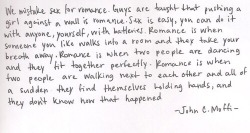 We mistake sex for romance. Guys are taught that pushing a
girl against a wall is romance. Sex is easy, you can do it
with anyone, yourself, with batteries. Romance is when
someone you like walks into a room and they take your
breath away. Romance is when two people are dancing
and they fit together perfectly. Romance is when
two people are walking next to each other and all of
a sudden they find themselves holding hands, and
they don't know how that happened
~John C. Moffi~